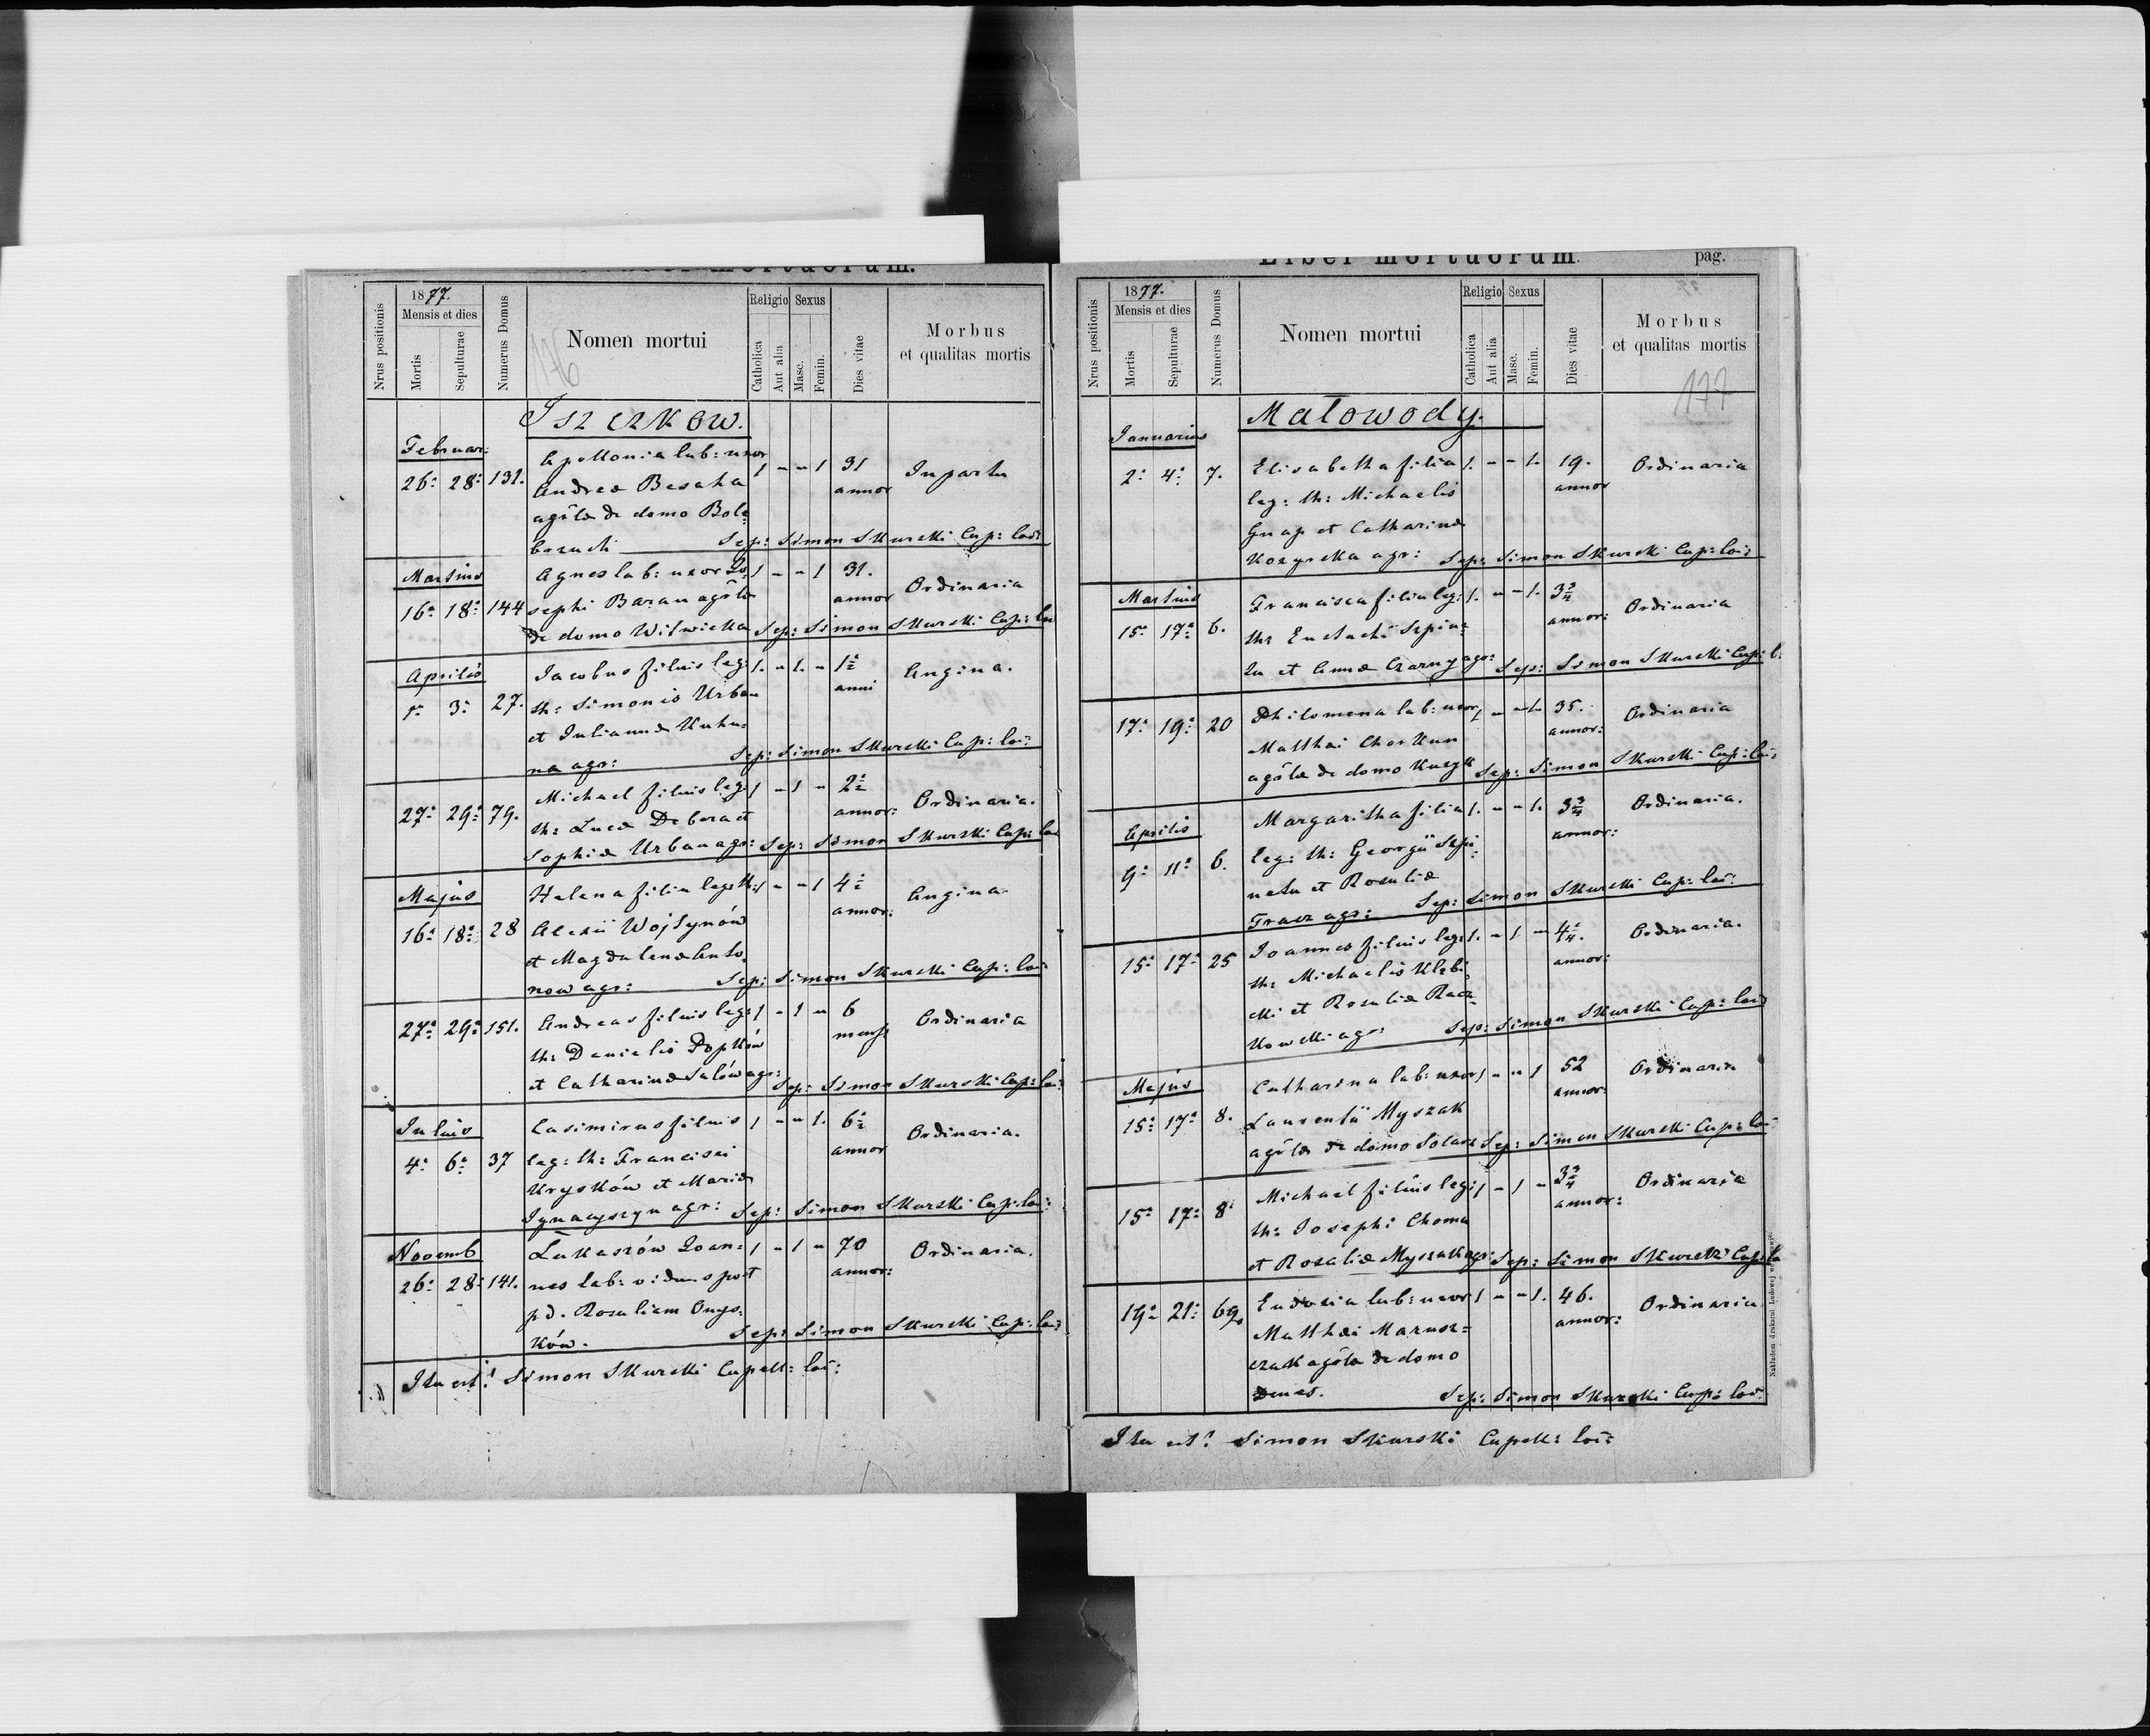 Liber mortuorum.
1877.
Nrus positionis
Mensis et dies
Mortis
Sepulturae
Numerus Domus
176
Nomen mortui
Religio
Catholica
Aut alia
Sexus
Masc.
Femin.
Dies vitae
Morbus
et qualitas mortis
Iszczków.
Februar:
26: 28: 131.
Apollonia lab: uxor 1 - - 1 31
Andreæ Besaha annor In partu
agrlæ de domo Bole=
Sep: Simon Skurski Cap: loci
Martius
Agnes lab: uxor Jo= 1 - - 1 31.
16: 18: 144 sephi Baran agrlæ annor Ordinaria
de domo Witwicka Sep: Simon Skurski Cap: loci
Aprilis
Jacobus filius leg: 1. - 1. - 1½ Angina.
1: 3: 27. th: Simonis Urban anni
et Juliannæ Kuku=
na agr: Sep: Simon Skurski Cap: loci:
27: 29: 79. Michael filius leg: 1 - 1 - 2½
th: Lucæ Debera et annor: Ordinaria.
Sophiæ Urban agr: Sep: Simon Skurski Cap: loci
Majus
Helena filia leg: th: 1 - - 1 4½ Angina
16: 18: 28 Alexii Wojtynów annor:
et Magdalenæ Anto=
now agr: Sep: Simon Skurski Cap: loci
27: 29: 151. Andreas filius leg: 1 - 1 - 6 Ordinaria
th: Danielis Popków mens:
et Catharinæ Salów agr: Sep: Simon Skurski Cap: loci:
Julius
Casimirus filius 1 - - 1. 6½ Ordinaria.
4: 6: 37 leg: th: Francisci annor
Kryśków et Mariæ
Ignacyszyn agr: Sep: Simon Skurski Cap: loci:
Novemb
Lukaszów Joan= 1 - 1 - 70 Ordinaria.
26: 28: 141. nes lab: viduus post annor:
pd. Rosaliam Onys=
ków. Sep: Simon Skurski Cap: loci
Ita est! Simon Skurski Capell: loci:
Liber mortuorum.
pag.
1877.
Nrus positionis
Mensis et dies
Mortis
Sepulturae
Numerus Domus
Nomen mortui
Religio
Catholica
Aut alia
Sexus
Masc.
Femin.
Dies vitae
Morbus
et qualitas mortis
177
Małowody.
Januarius
2: 4: 7. Elisabetha filia 1. - - 1. 19. Ordinaria
leg: th: Michaelis annor
Gnap et Catharinæ
Kozyrska agr: Sep: Simon Skurski Cap: loci:
Martius
Francisca filia leg: 1. - - 1. 3¾ Ordinaria
15: 17: 6. th: Eustachi Szpine= annor:
tu et Annæ Czarny agr: Sep: Simon Skurski Cap: l:
17: 19: 20 Philomena lab: uxor 1 - - 1. 35. Ordinaria
Matthæi Chorkun annor:
agrlæ de domo Kuzyk Sep: Simon Skurski Cap: loci:
Aprilis
Margaritha filia 1. - - 1. 3¾ Ordinaria.
9: 11: 6. leg: th: Georgii Szpi= annor:
netu et Rosaliæ
Tracz agr: Sep: Simon Skurski Cap: loci:
15: 17: 25 Joannes filius leg: 1. - 1 - 4¼. Ordinaria.
th: Michaelis Klebi= annor:
cki et Rosaliæ Racz=
kowski agr: Sep: Simon Skurski Cap: loci
Majus
Catharina lab: uxor 1 - - 1 52 Ordinaria
15: 17: 8. Laurentii Myszak annor:
agrlæ de domo Solarz Sep: Simon Skurski Cap: loci
15: 17: 8 Michael filius leg: 1 - 1 - 3¾ Ordinaria
th: Josephi Choma annor:
et Rosaliæ Myszak agr: Sep: Simon Skurski Cap: lo
19: 21: 69. Eudoxia lab: uxor 1 - - 1. 46. Ordinaria
Matthæi Marusz= annor:
czak agrlæ de domo
Denes. Sep: Simon Skurski Cap: loci:
Ita est! Simon Skurski Capell: loci: